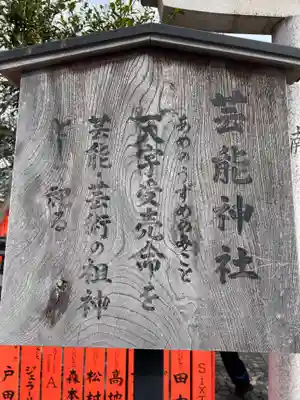 芸能神社
あめのうずめのみこと
天宇受売命を
芸能・芸術の祖神
祀る
SixT
田
高
松村
森本
A
ジェラー
戸田